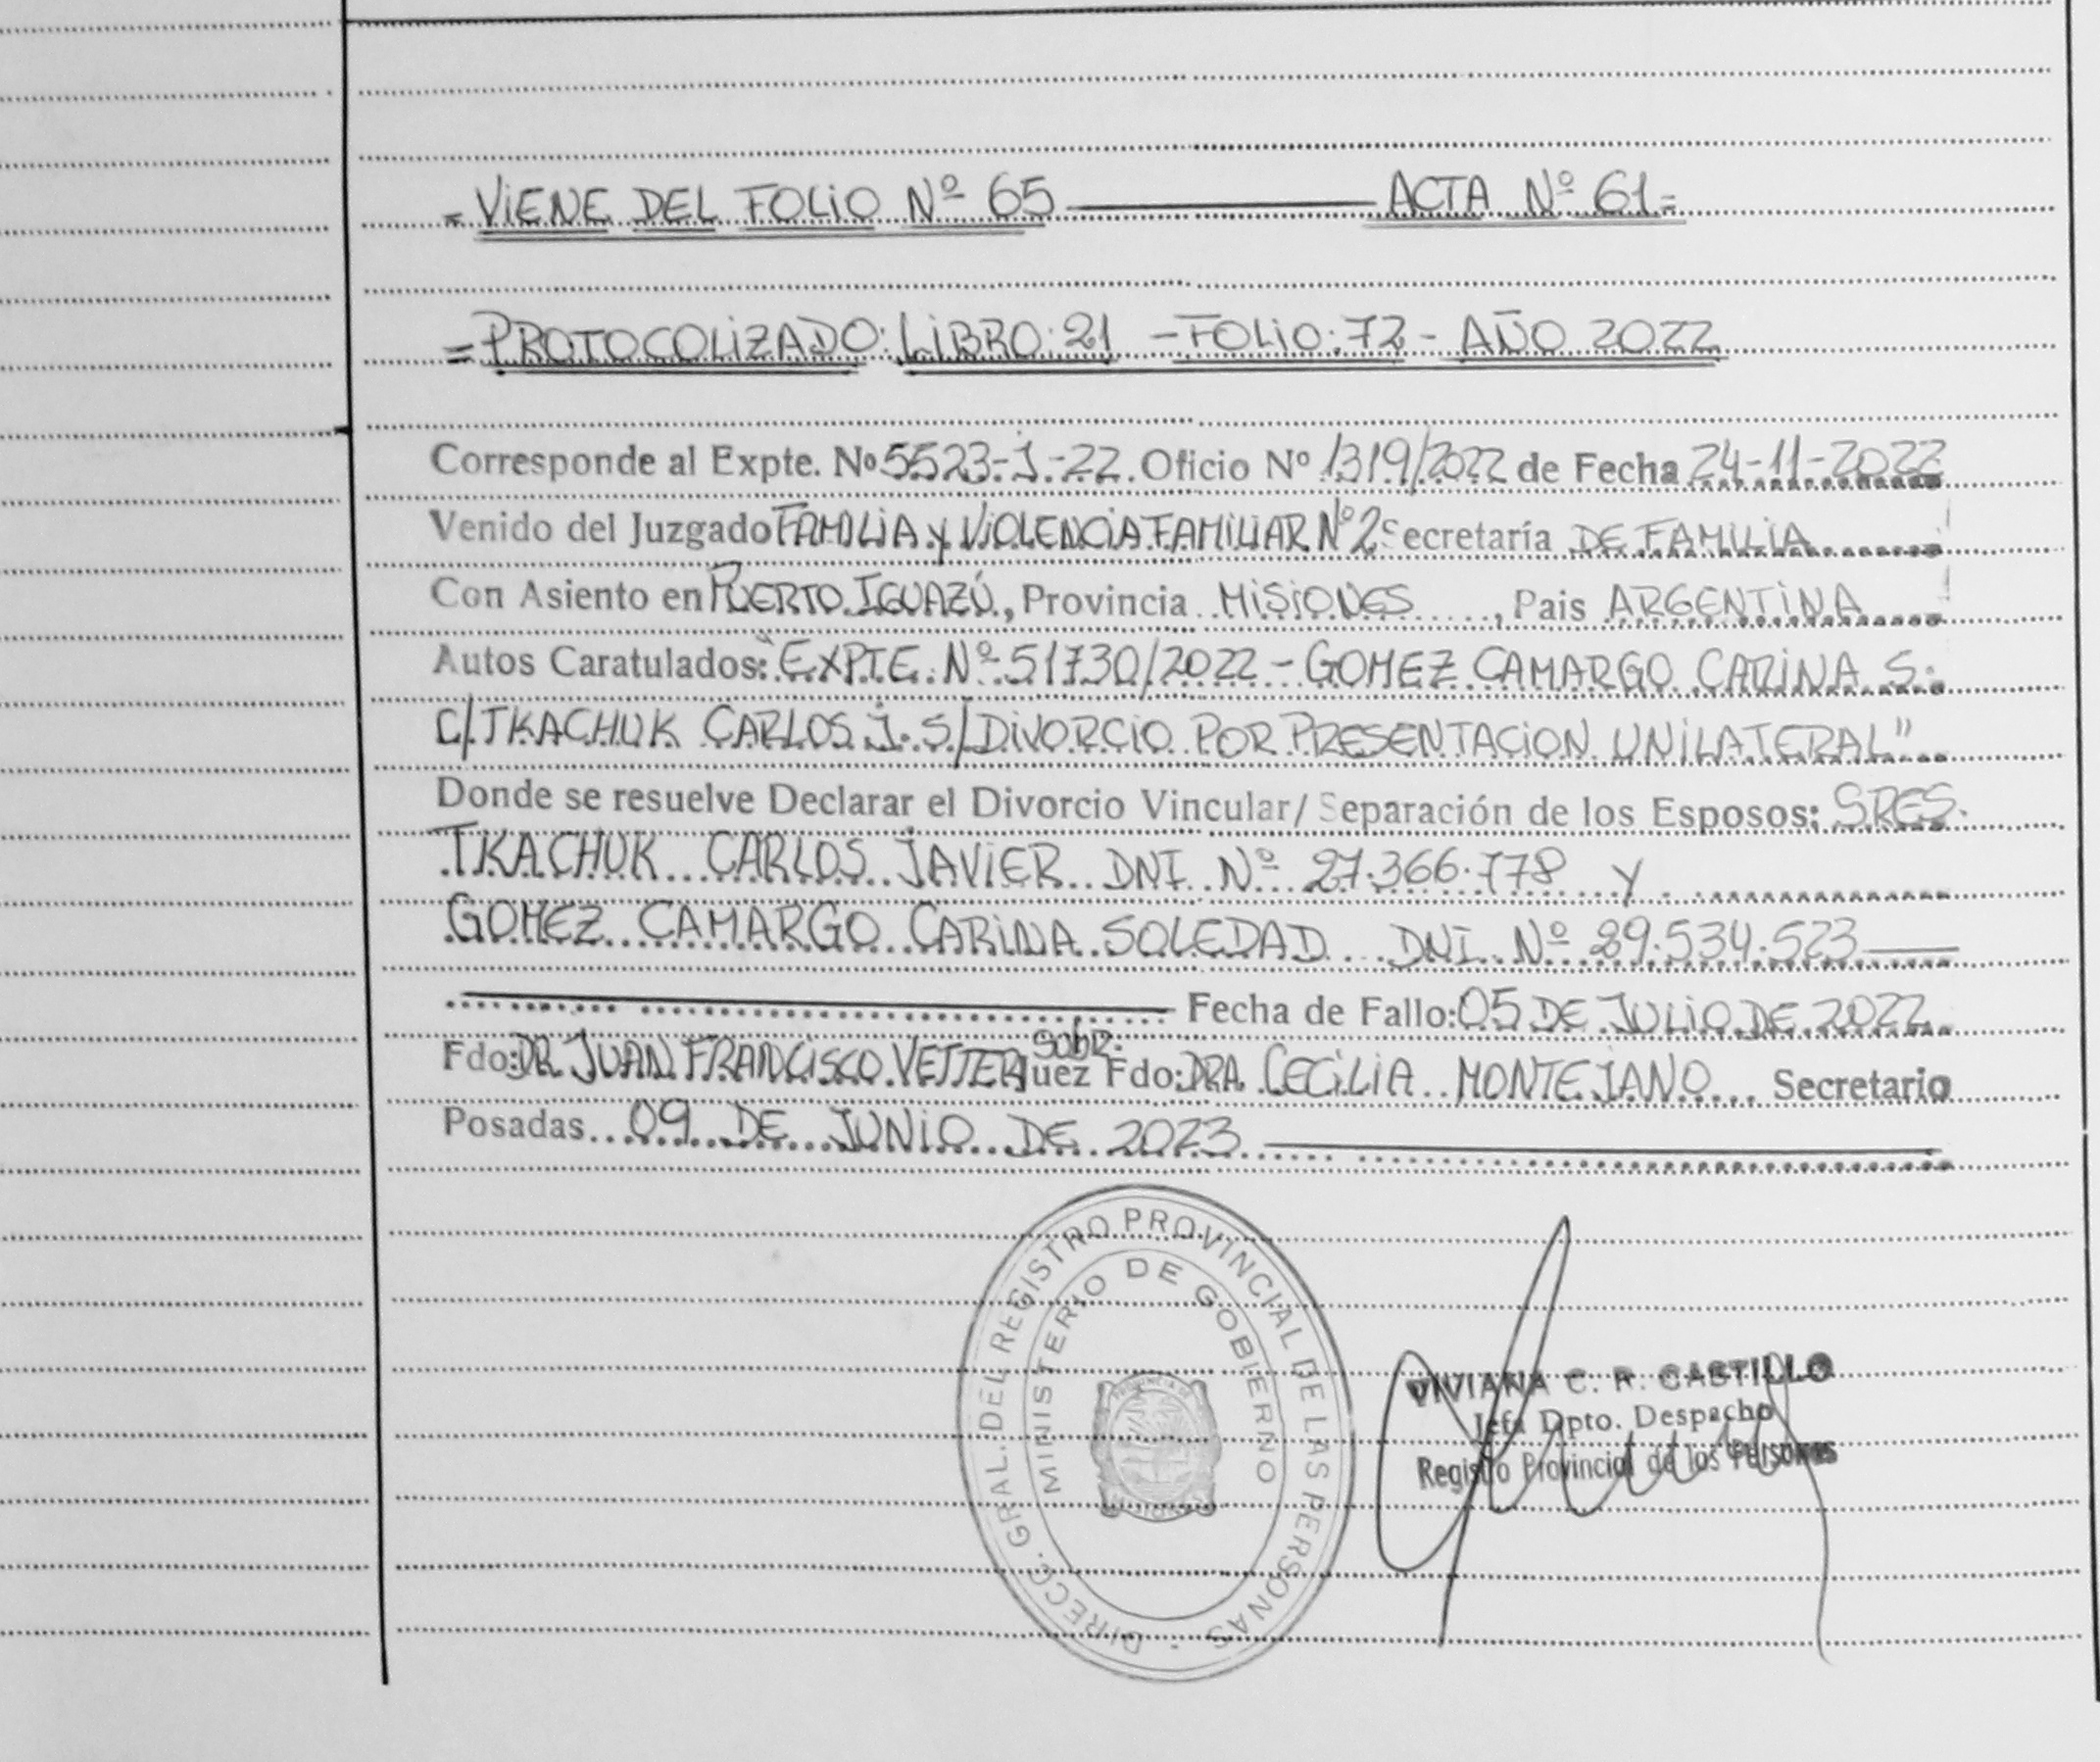 = VIENE DEL FOLIO Nº 65 ——— ACTA Nº 61 =
= PROTOCOLIZADO: LIBRO: 21 - FOLIO: 72 - AÑO 2022
Corresponde al Expte. Nº 5523-J-22. Oficio Nº 1319/2022 de Fecha 24-11-2022
Venido del Juzgado FAMILIA y VIOLENCIA FAMILIAR Nº 2 Secretaría DE FAMILIA
Con Asiento en PUERTO IGUAZÚ, Provincia MISIONES, Pais ARGENTINA
Autos Caratulados: "EXPTE. Nº 51730/2022 - GOMEZ CAMARGO CARINA S.
C/TKACHUK CARLOS J. S/DIVORCIO POR PRESENTACION UNILATERAL"
Donde se resuelve Declarar el Divorcio Vincular/ Separación de los Esposos: SRES.
TKACHUK CARLOS JAVIER DNI Nº 27.366.778 Y
GOMEZ CAMARGO CARINA SOLEDAD DNI Nº 29.534.523
Fecha de Fallo: 05 DE JULIO DE 2022
Fdo: DR JUAN FRANCISCO VETTER Subr. Juez Fdo: DRA. CECILIA MONTEJANO Secretario
Posadas 09 DE JUNIO DE 2023
DIRECC. GRAL. DEL REGISTRO PROVINCIAL DE LAS PERSONAS
MINISTERIO DE GOBIERNO
VIVIANA C. R. CASTILLO
Jefa Dpto. Despacho
Registro Provincial de los Personas